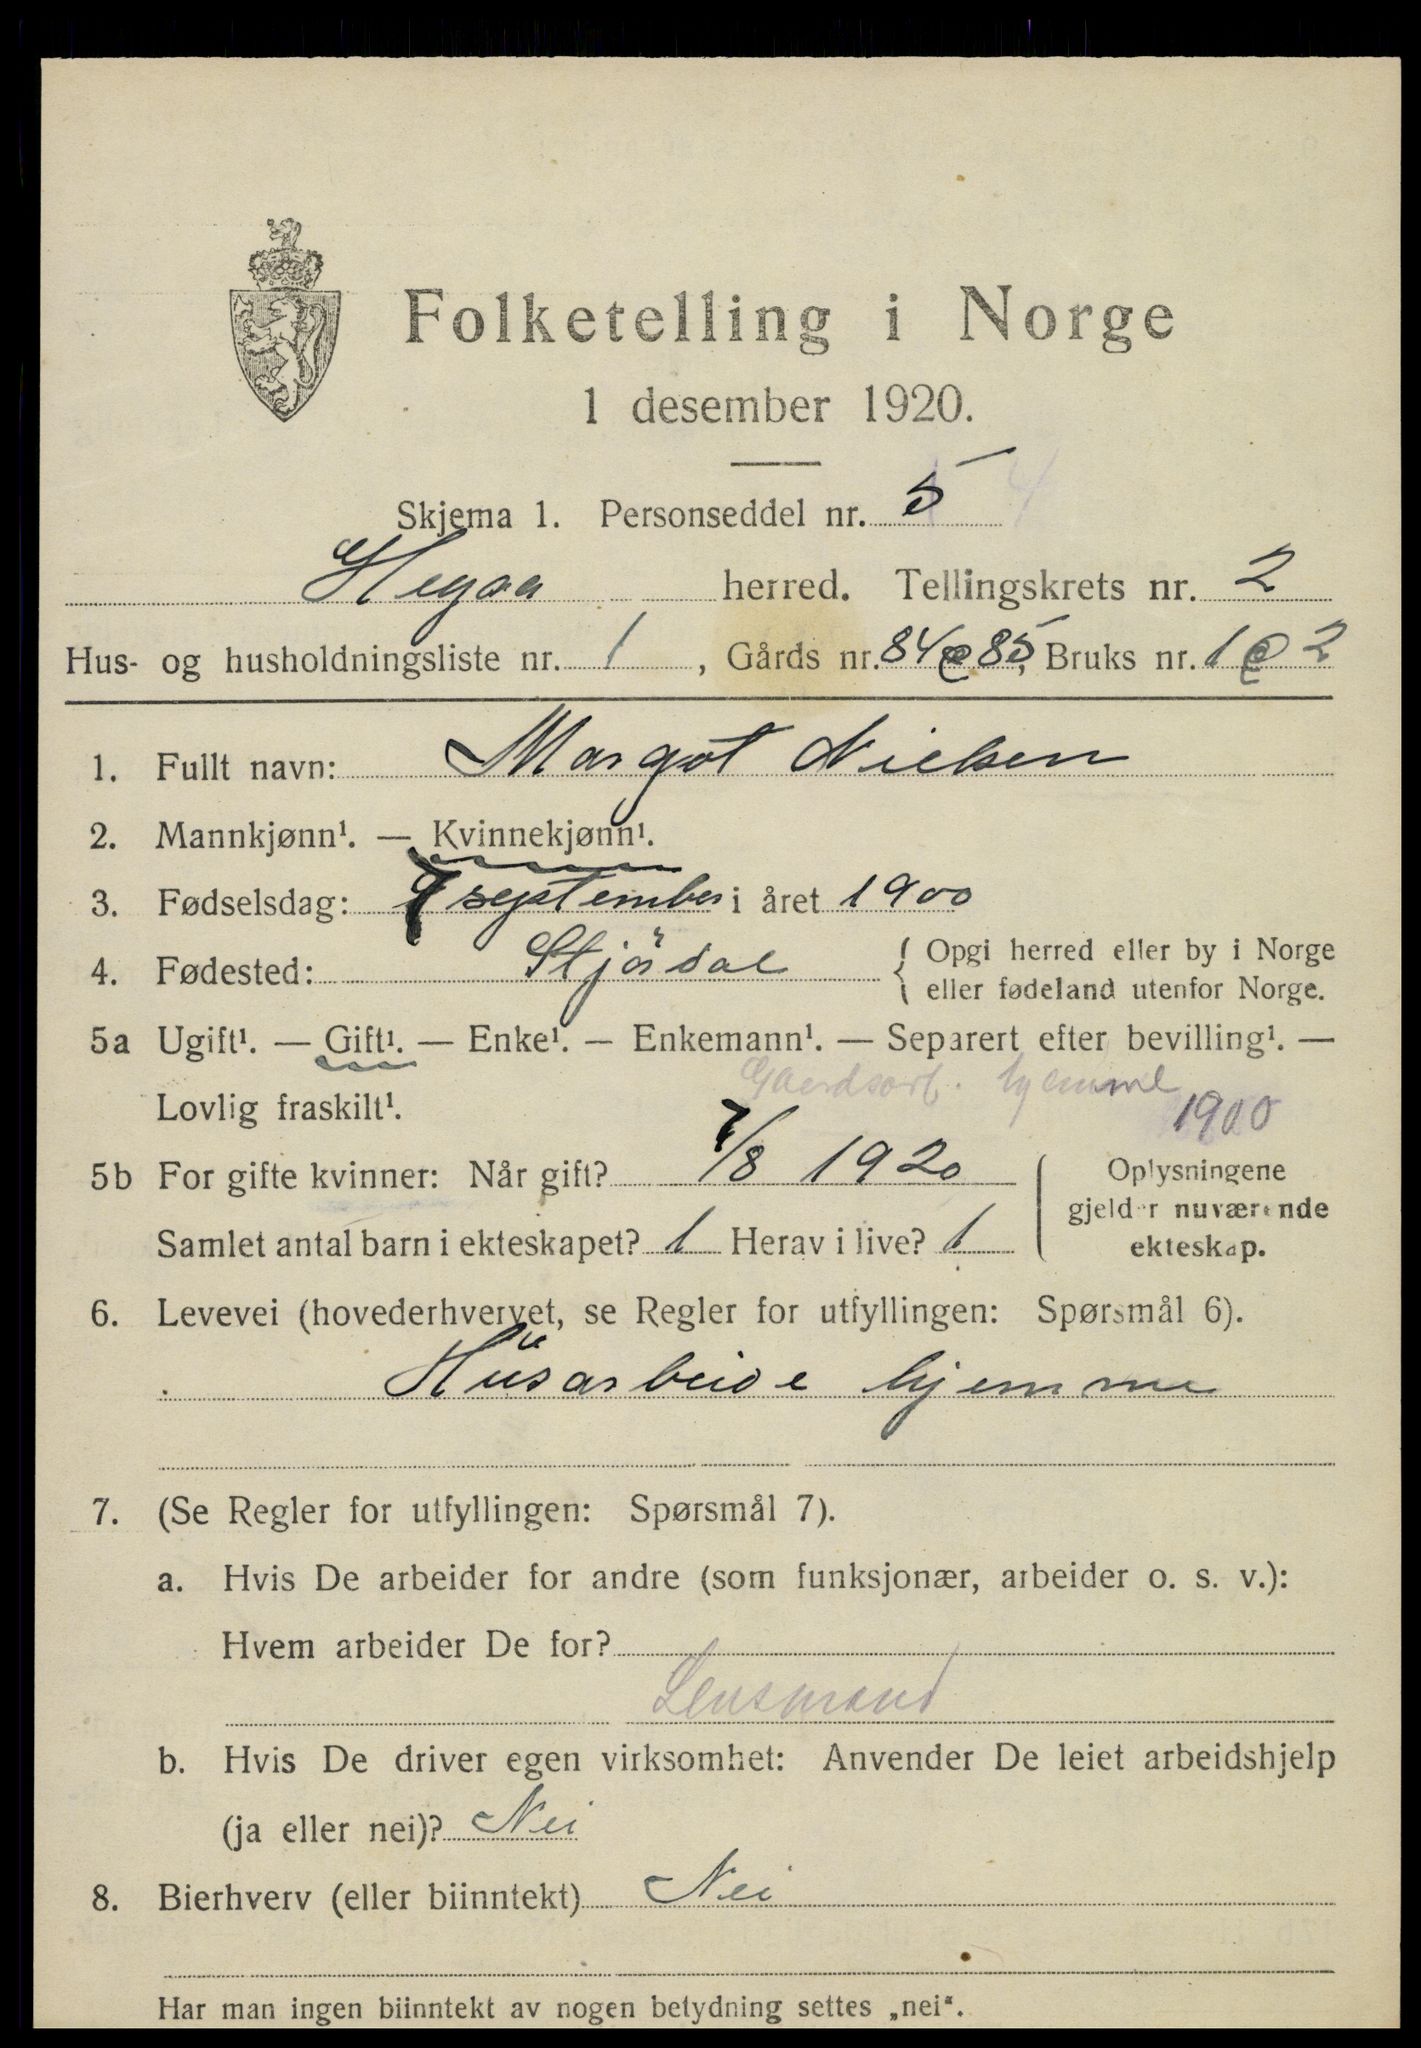 Folketelling i Norge
1 desember 1920.
Skjema 1. Personseddel nr. 5 4
Hegra herred. Tellingskrets nr. 2
Hus- og husholdningsliste nr. 1, Gårds nr. 84 & 85, Bruks nr. 1 & 2
1. Fullt navn: Margot Nielsen
2. Mannkjønn¹. — Kvinnekjønn¹.
3. Fødselsdag: 7 september i året 1900
4. Fødested: Stjørdal { Opgi herred eller by i Norge
eller fødeland utenfor Norge.
5a Ugift¹. — Gift¹. — Enke¹. — Enkemann¹. — Separert efter bevilling¹. —
Gaardsarb. hjemme
Lovlig fraskilt¹. 1900
5b For gifte kvinner: Når gift? 7/8 1920
Samlet antal barn i ekteskapet? 1 Herav i live? 1
Oplysningene
gjelder nuværende
ekteskap.
6. Levevei (hovederhvervet, se Regler for utfyllingen: Spørsmål 6).
Husarbeide hjemme
7. (Se Regler for utfyllingen: Spørsmål 7).
a. Hvis De arbeider for andre (som funksjonær, arbeider o. s. v.):
Hvem arbeider De for?
Lensmand
b. Hvis De driver egen virksomhet: Anvender De leiet arbeidshjelp
(ja eller nei)? Nei
8. Bierhverv (eller biinntekt) Nei
Har man ingen biinntekt av nogen betydning settes „nei“.